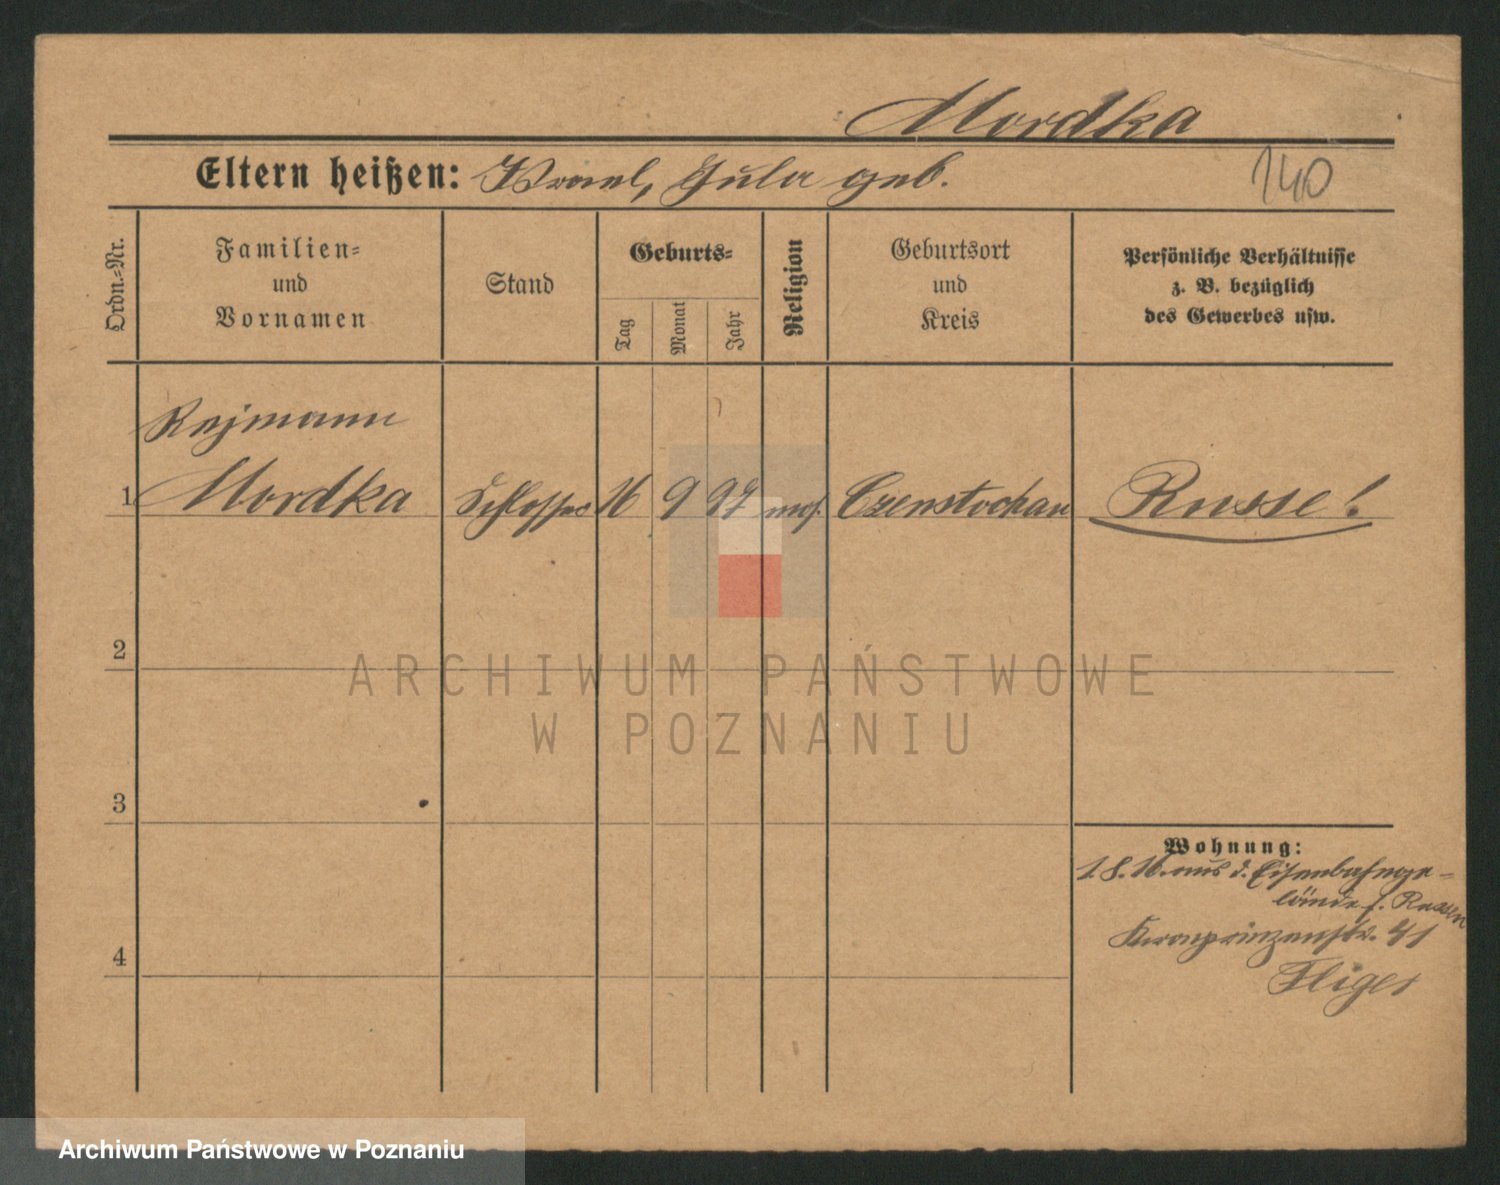 Mordka
Eltern heißen: Israel, Gula geb.
140
Ordn.-Nr.
Familien-
und
Vornamen
Stand
Geburts-
Tag
Monat
Jahr
Religion
Geburtsort
und
Kreis
Persönliche Verhältnisse
z. B. bezüglich
des Gewerbes usw.
Rajmann
1 Mordka Schlosser 16 9 97 mos. Czenstochau Russe!
2
3
4
Wohnung:
1.8.16. aus d. Eisenbahnge-
lände f. Russen
Kronprinzenstr. 41
Fliges
ARCHIWUM PAŃSTWOWE
W POZNANIU
Archiwum Państwowe w Poznaniu